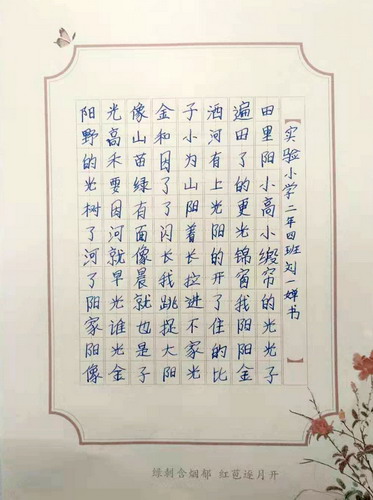 阳光像金子洒遍田
野高山和小河田里
的禾苗因为有了阳
光要绿了山上的小
树因有了阳光更高
了河面闪着阳光小
河就像长长的锦缎
了早晨我拉开窗帘
阳光就跳进了我的
家谁也捉不住阳光
阳光是大家的阳光
像金子阳光比金子
【实验小学二年四班刘一婵书】
绿刺含烟郁 红苞逐月开